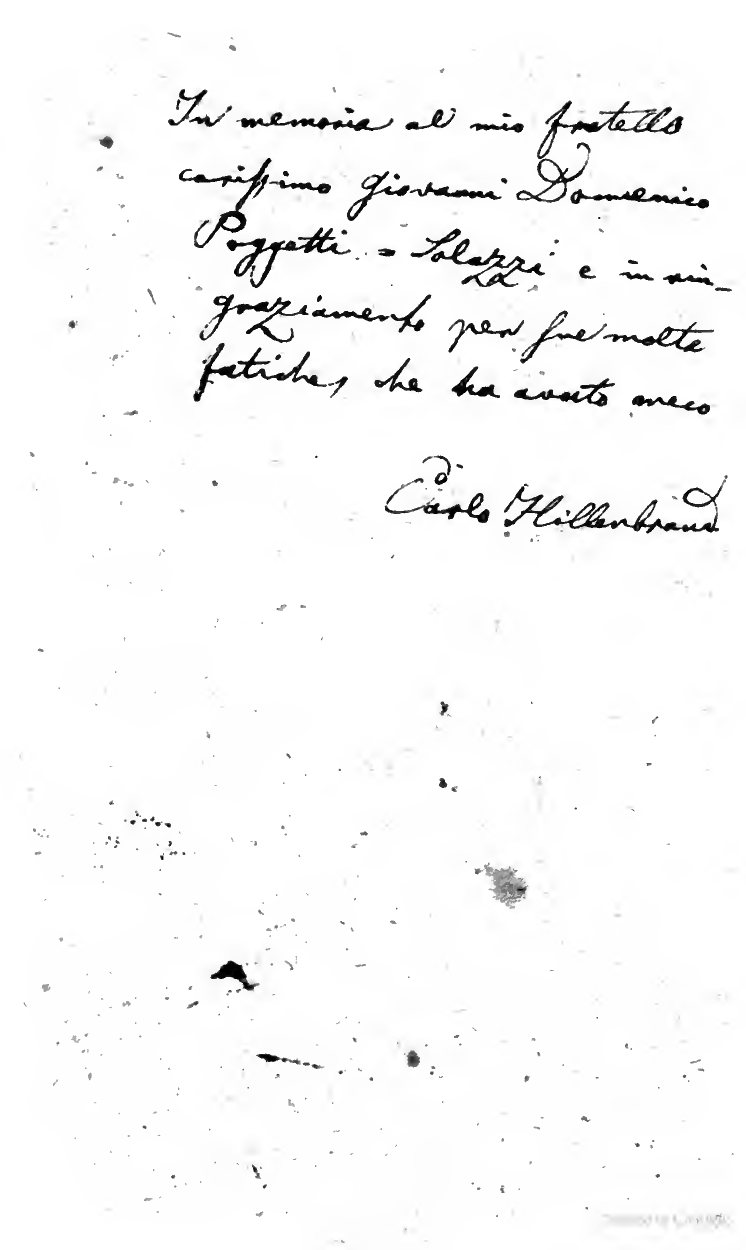 In memoria al mio fratello
carissimo Giovanni Domenico
Poggetti = Solazzi e in rin=
graziamento per sue molte
fatiche, che ha avuto meco
Carlo Hillenbrand